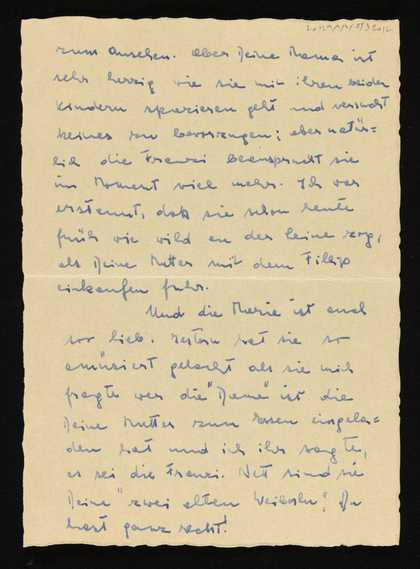 zum ansehen. Aber Deine Mama ist
sehr herzig wie sie mit ihren beiden
Kindern spazieren geht und versucht
keines zu bevorzugen; aber natür=
lich die Franzi beansprucht sie
im Moment viel mehr. Ich war
erstaunt, daß sie schon heute
früh wie wild an der Leine zog,
als Deine Mutter mit dem Fillipo
einkaufen fuhr.
Und die Maria ist auch
so lieb. Gestern hat sie so
amüsiert gelacht als sie mich
fragte wer die "Dame" ist die
Deine Mutter zum Essen eingela=
den hat und ich ihr sagte,
es sei die Franzi. Nett sind sie
Deine "zwei alten Weiberln", Du
hast ganz recht!